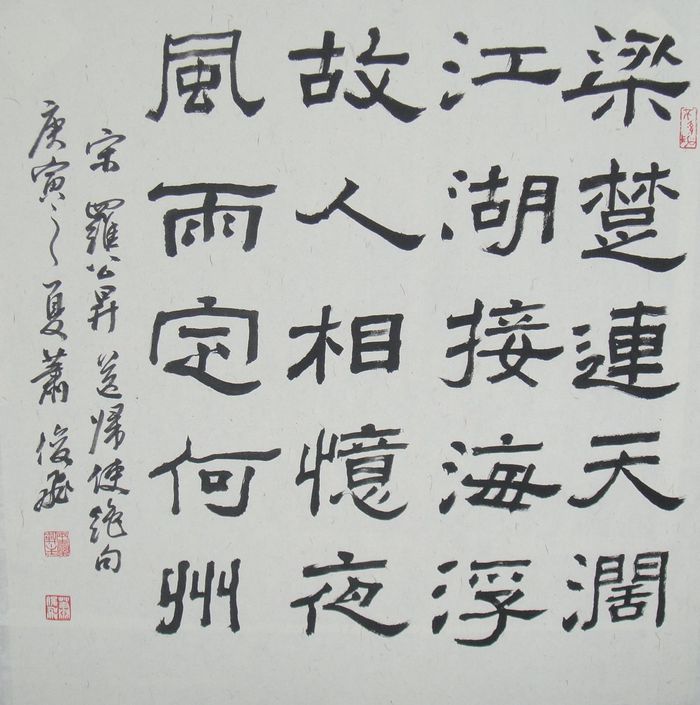 梁楚連天闊
江湖接海浮
故人相憶夜
風雨定何州
宋羅公昇送歸使絶句
庚寅之夏蕭俊飛